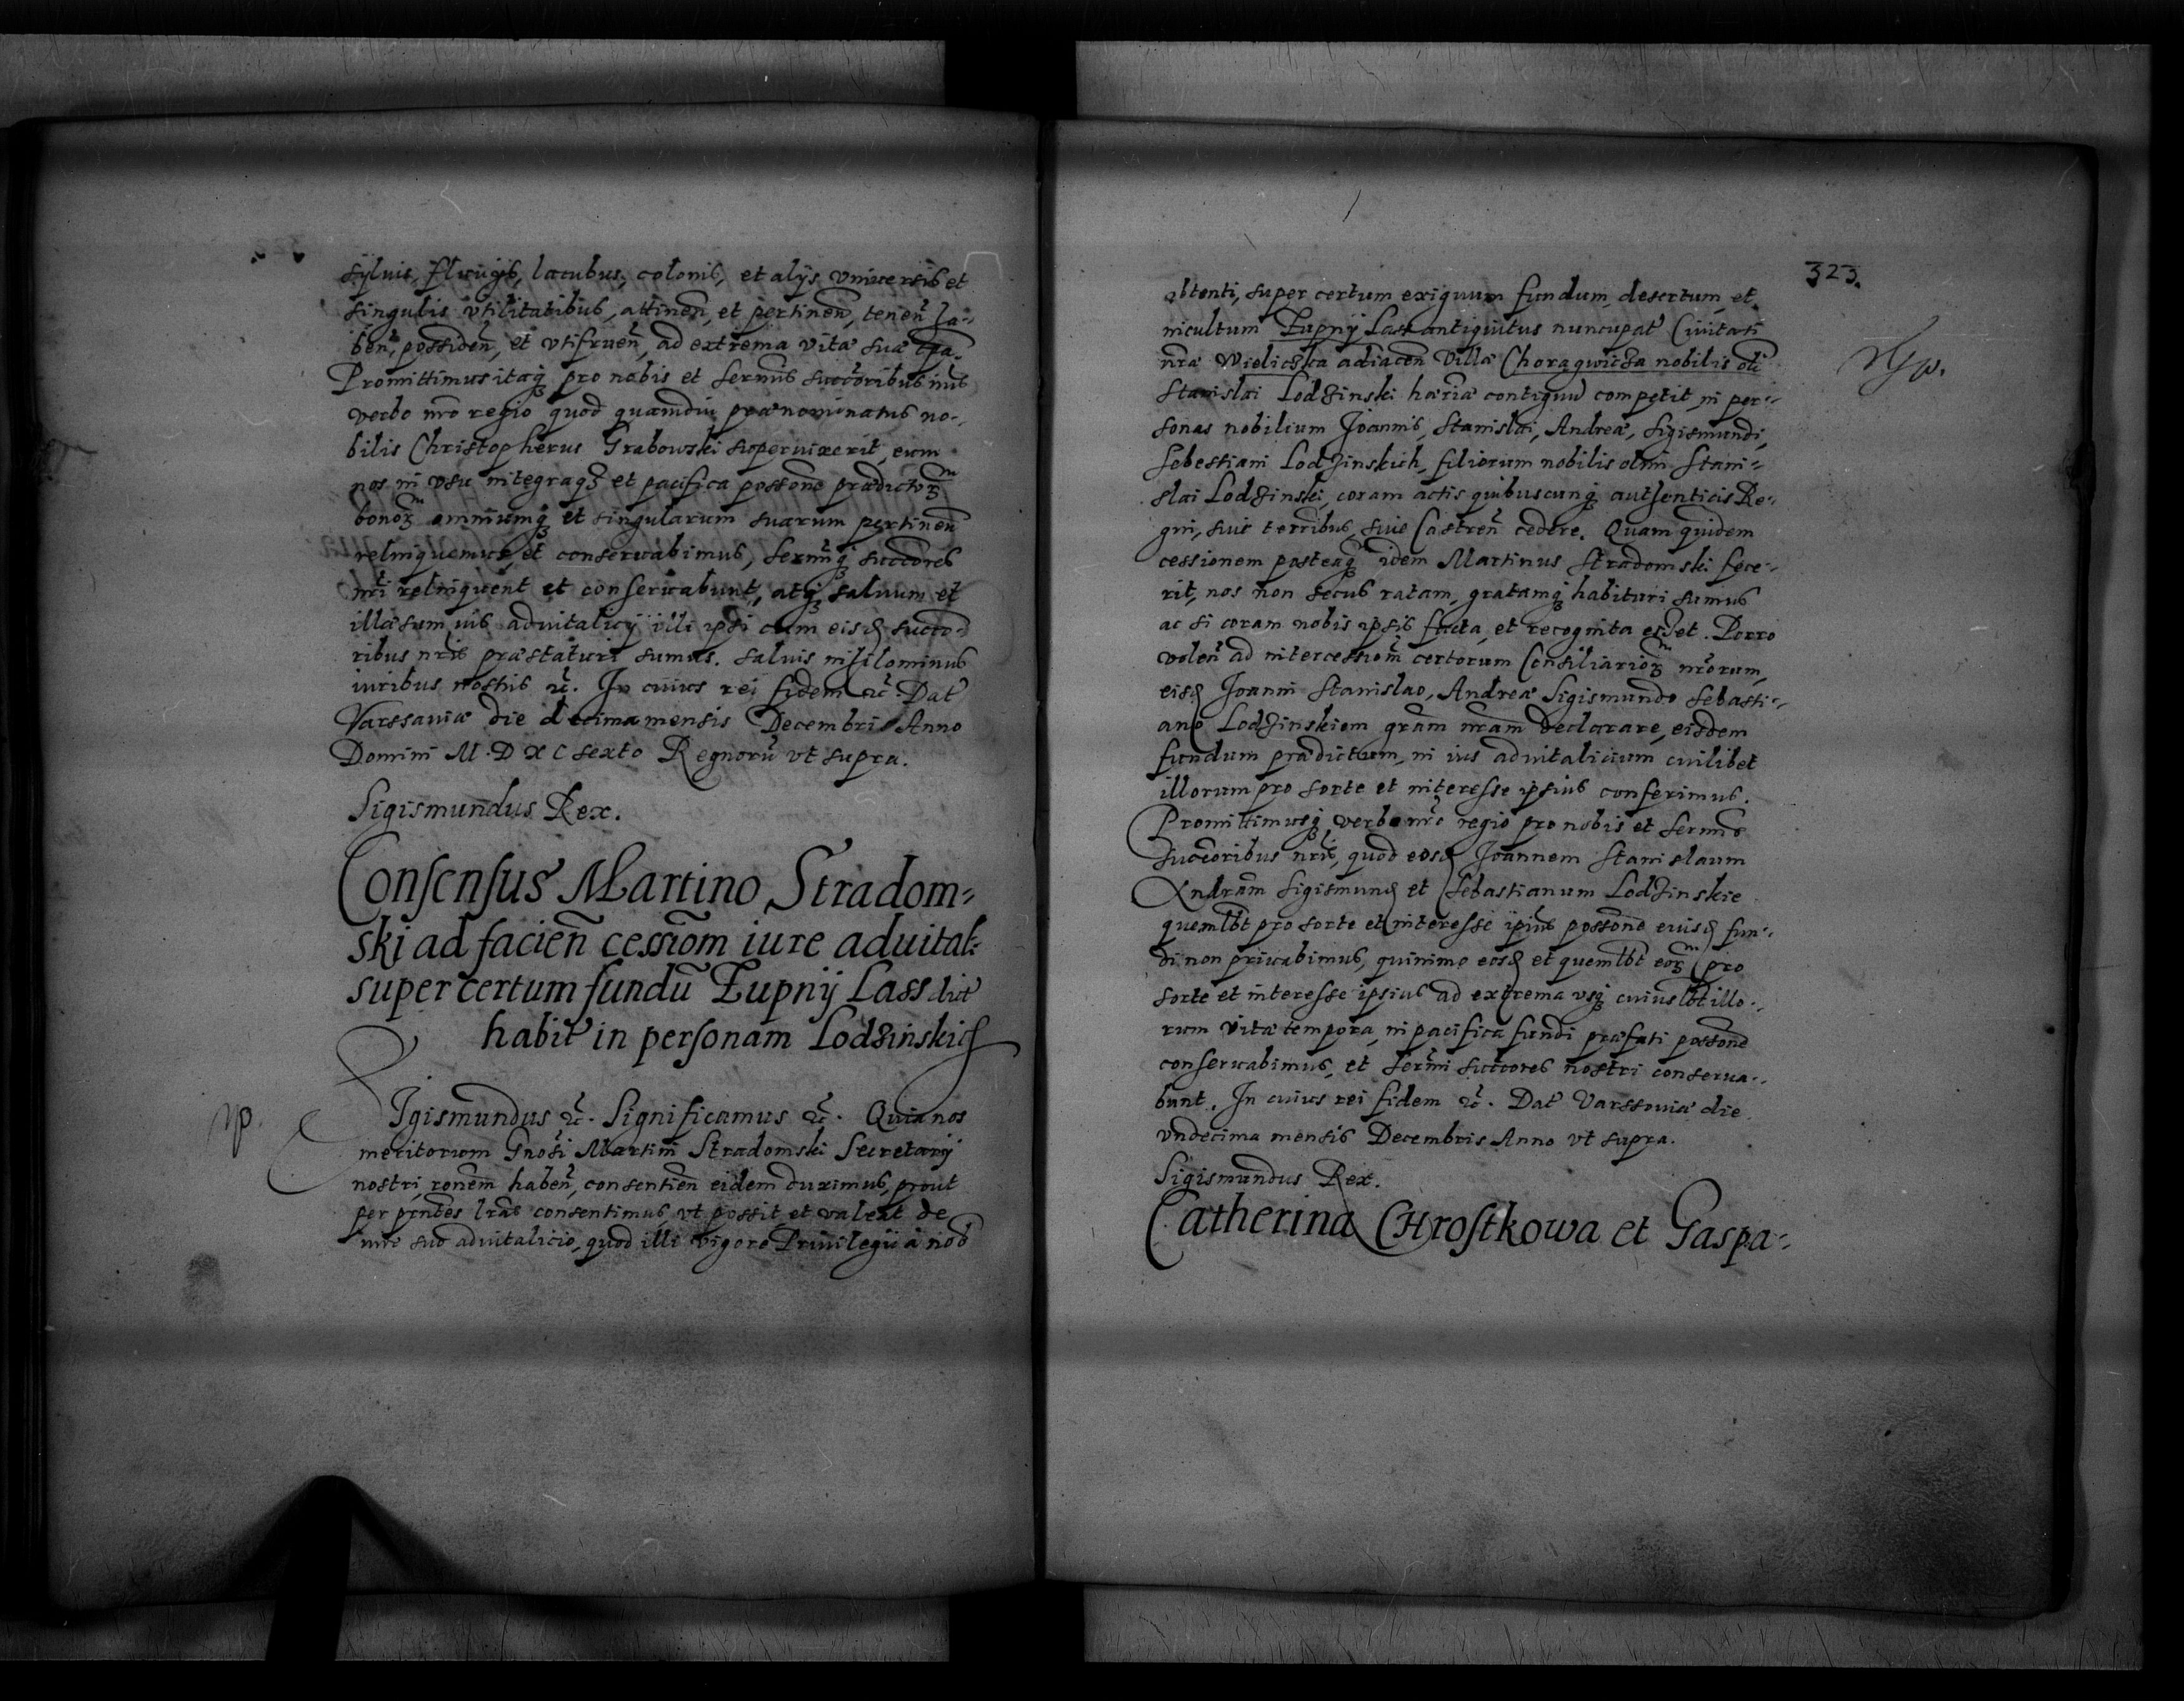 sylvis, fluvijs, lacubus, colonis, et alijs vniversis et
singulis vtilitatibus, attineñ, et pertineñ, teneñ ha-
beñ, possideñ, et vtifrueñ, ad extrema vitæ suæ tpa.
Promittimus itaq pro nobis et sermis succoribus nris
verbo nro regio quod quamdiu prænominatus no-
bilis Christopherus Grabowski supervixerit, eum
nos in vsu integraq et pacifica possone prædictorum
bonorum omniumq et singularum suarum pertineñ
relinquemus, et conservabimus, sermiq succores
nri relinquent et conservabunt, atq salvum et
illæsum ius advitalicij illi ipsi cum eisd succo-
ribus nris præstaturi sumus. Salvis nihilominus
iuribus nostris etc. In cuius rei fidem etc. Dat
Varssaviæ die decima mensis Decembris Anno
Domini M.D XC sexto Regnorũ vt supra.
Sigismundus Rex.
Consensus Martino Stradom-
ski ad facieñ cessiom iure advital:
super certum fundũ Zupnÿ Lass dict
habit in personam Lodzinskich
Sigismundus etc. Significamus etc. Quia nos
meritorum Gnosi Martini Stradomski Secretarij
nostri, ronem habeñ, consentieñ eidem duximus, prout
per pntes lras consentimus, vt possit et valeat de
iure suo advitalicio, quod illi vigore Privilegij a nob
323.
obtenti, super certum exiguum fundum, desertum, et
incultum Zupnÿ Lass antiquitus nuncupat Civitati
nræ Wieliczka adiaceñ villæ Choragwicza nobilis oli
Stanislai Lodzinski hæriæ contiguũ competit, in per-
sonas nobilium Joannis, Stanislai, Andreæ, Sigismundi,
Sebestiani Lodzinskich, filiorum nobilis olim Stani-
slai Lodzinski, coram actis quibuscunq authenticis Re-
gni, sive terribus, sive Castreñ cedere. Quam quidem
cessionem posteaq idem Martinus Stradomski fece-
rit, nos non secus ratam, gratamq habituri sumus
ac si coram nobis ipsis facta, et recognita esset. Porro
voleñ ad intercessiom certorum Consiliariorum nrorum,
eisd Joanni Stanislao, Andreæ Sigismundo Sebasti-
ano Lodzinskiem gram nram declarare, eisdem
fundum prædictum, in ius advitalicium cuilibet
illorum pro sorte et interesse ipsius conferimus.
Promittimusq, verbo nro regio pro nobis et sermis
succoribus nris, quod eosd Joannem Stanislaum
Andræam Sigismund et Sebastianum Lodzinskie
quemlbt pro sorte et interesse ipius possone eiusd fun-
di non privabimus, quinimo eosd et quemlbt eorum pro
sorte et interesse ipsius ad extrema vsq cuiuslbt illo-
rum vitæ tempora, in pacifica fundi præfati possone
conservabimus, et sermi succores nostri conserva-
bunt. In cuius rei fidem etc. Dat Varssoviæ die
vndecima mensis Decembris Anno vt supra.
Sigismundus Rex.
Catherina CHrostkowa et Gaspa-